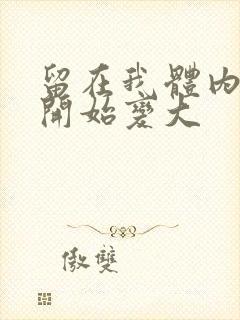 留在我體內
開始變大
傲雙